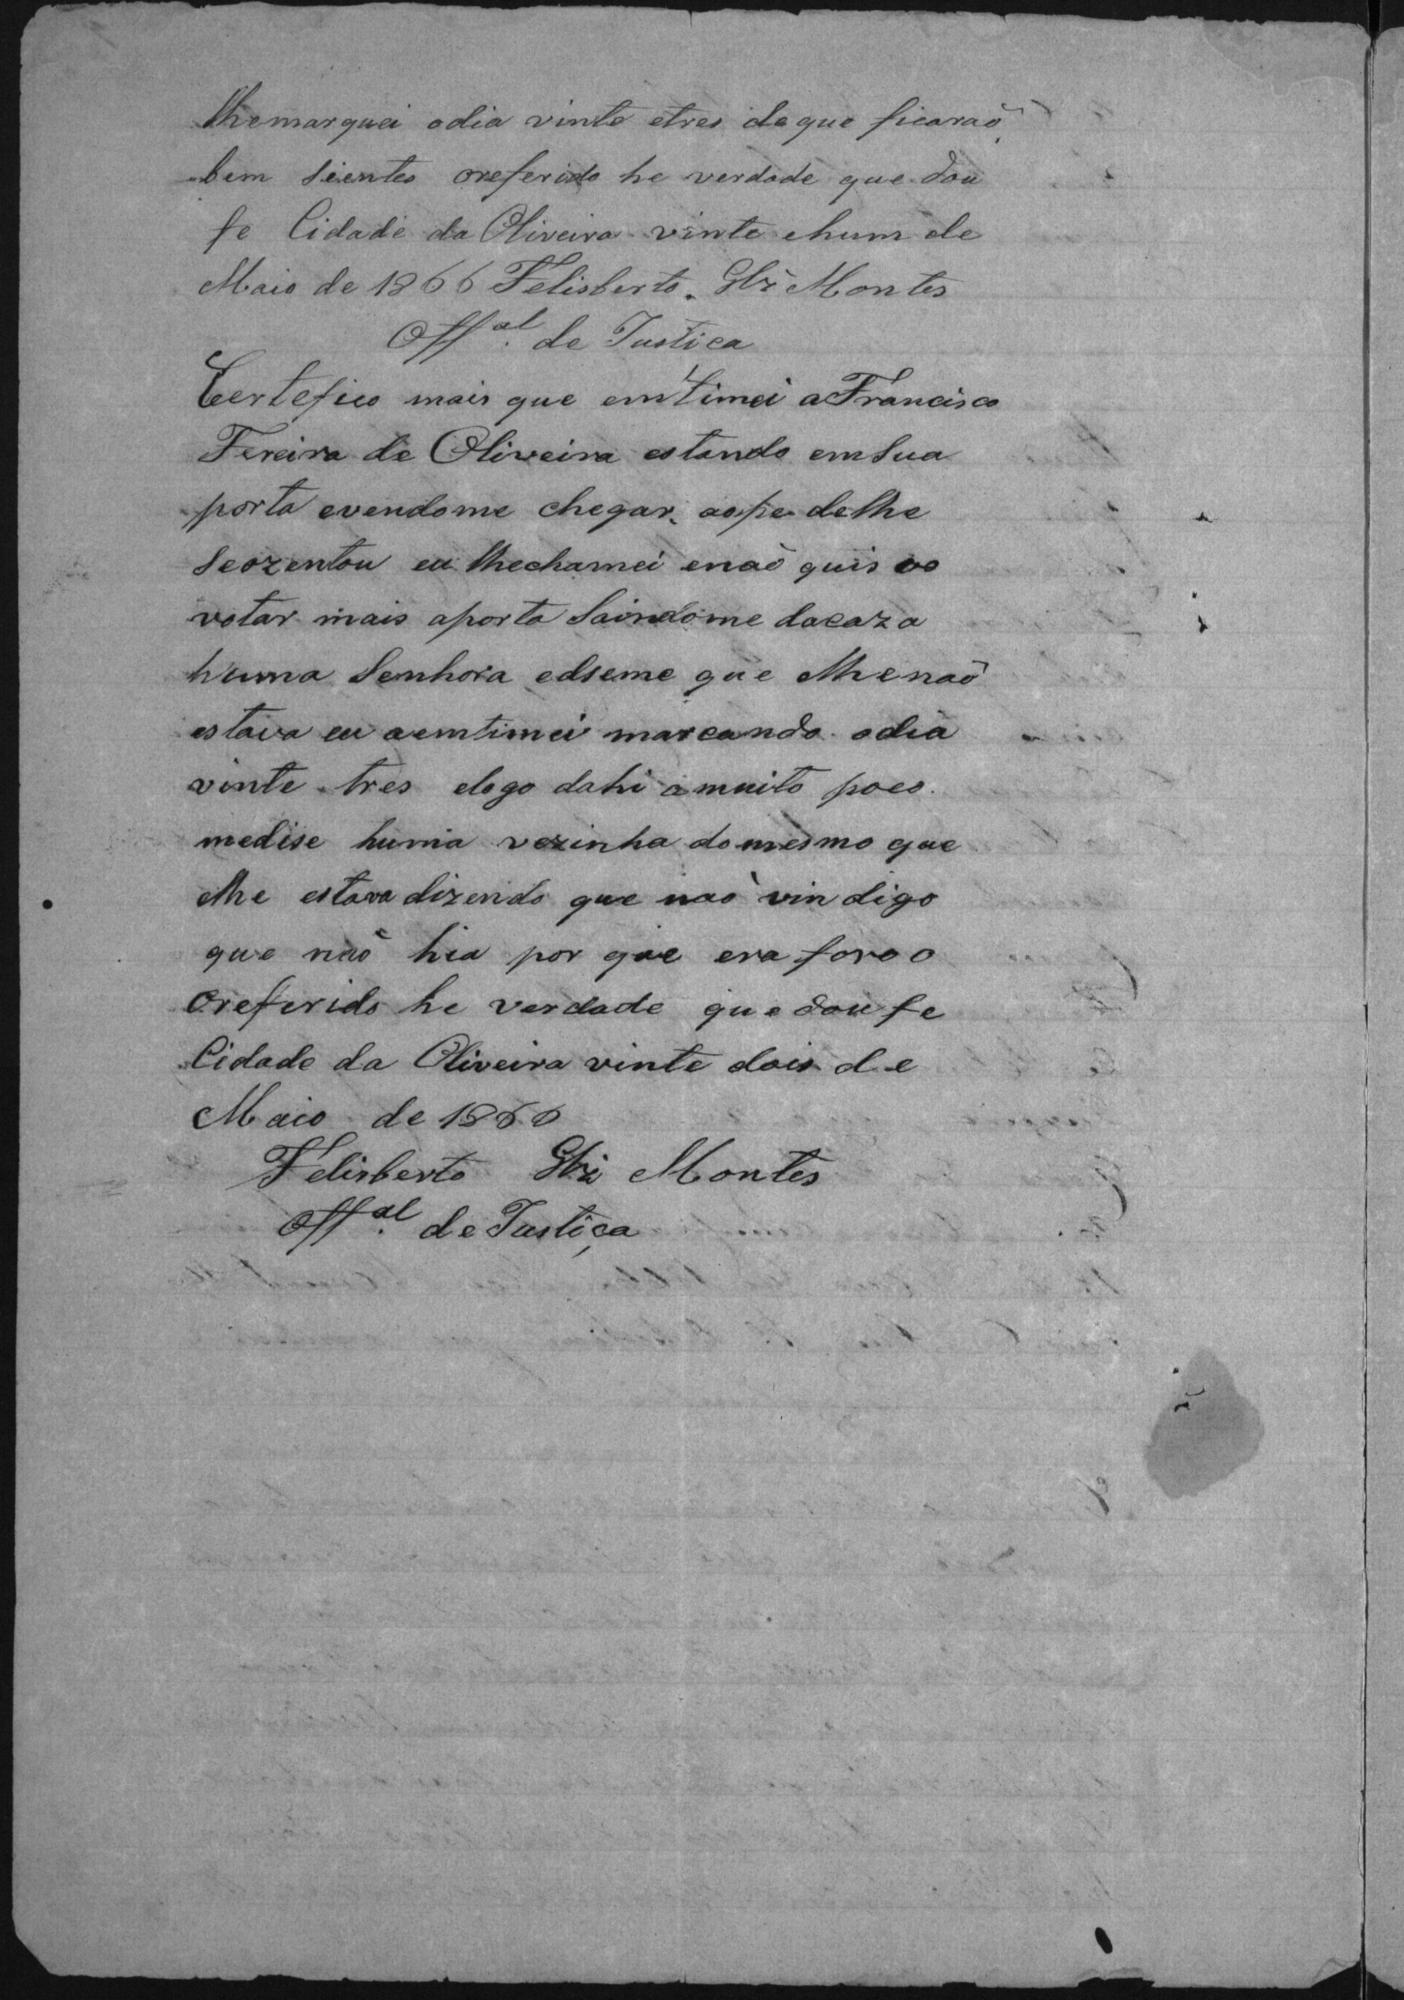 lhemarquei odia vinte etres deque ficaraõ
bem sientes oreferido he verdade que dou
fe Cidade da Oliveira vinte ehum de
Maio de 1866 Felisberto Glz Montes
Offal. de Justica
Certefico mais que emtimei aFrancisco
Fereira de Oliveira estando emSua
porta evendome chegar aope delhe
Seozentou eu lhechamei enaõ quis
votar mais aporta Saindome dacaza
huma Senhora edseme que elhe naõ
estava eu aemtimei marcando odia
vinte tres elogo dahi amuito poco
medise huma vezinha domesmo que
elhe estava dizendo que naõ vin digo
que naõ hia por que era foroo
Oreferido he verdade que dou fe
Cidade da Oliveira vinte dois de
Maio de 1866
Felisberto Glz Montes
Offal. de Justiça